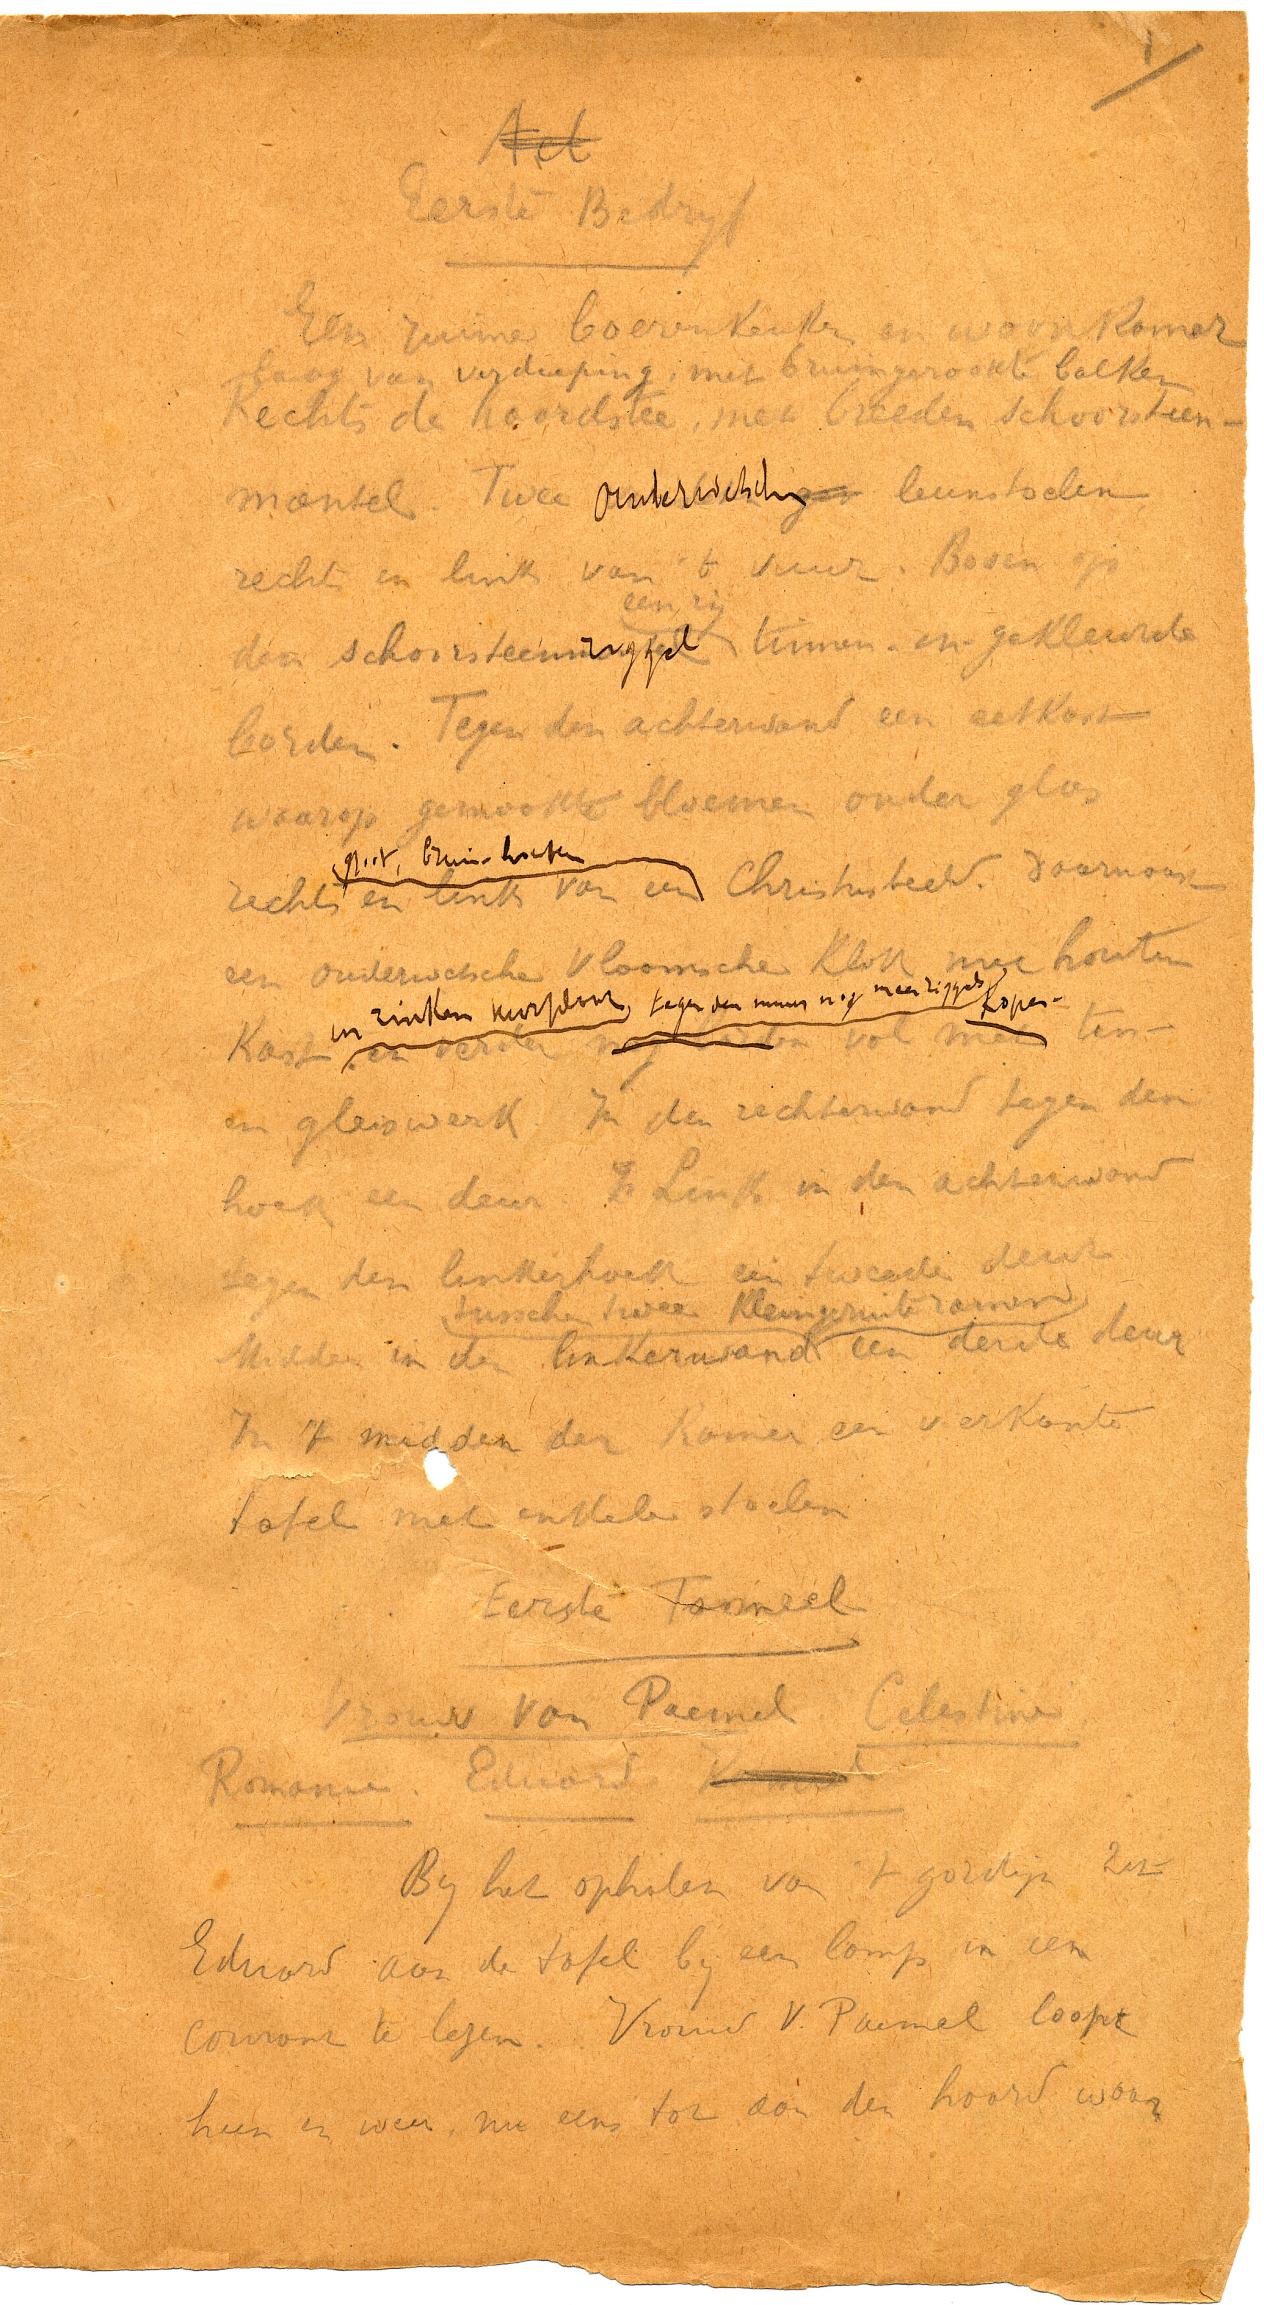 1
Act
Eerste Bedryf
Een ruime boerenkeuken en woonkamer
laag van verdieping, met bruingerookte balken
Rechts de haardstee, met breeden schoorsteen-
mantel. Twee ouderwetsche leunstoelen,
rechts en links van 't vuur. Boven op
een rij
den schoorsteen tinnen- en gekleurde
borden. Tegen den achterwand een eetkast
waarop gemaakte bloemen onder glas
groot, bruin-houten
rechts en links van een Christusbeeld. Daarnaast
een ouderwetsche Vlaamsche klok met houten
tegen den muur nog meer koper-
Kast en verder nog vol met tin-
en gleiswerk. In den rechterwand tegen den
hoek een deur. Links in den achterwand
tegen den linkerhoek een tweede deur
tusschen twee kleingeruite ramen
Midden in den linkerwand een derde deur
In 't midden der kamer een vierkante
tafel met enkele stoelen
Eerste Tooneel
Vrouw Van Paemel Celestine
Romanie. Eduard
By het ophalen van 't gordijn zit
Eduard aan de tafel by een lamp in een
courant te lezen. Vrouw V. Paemel loopt
heen en weer, nu eens tot aan den haard waar